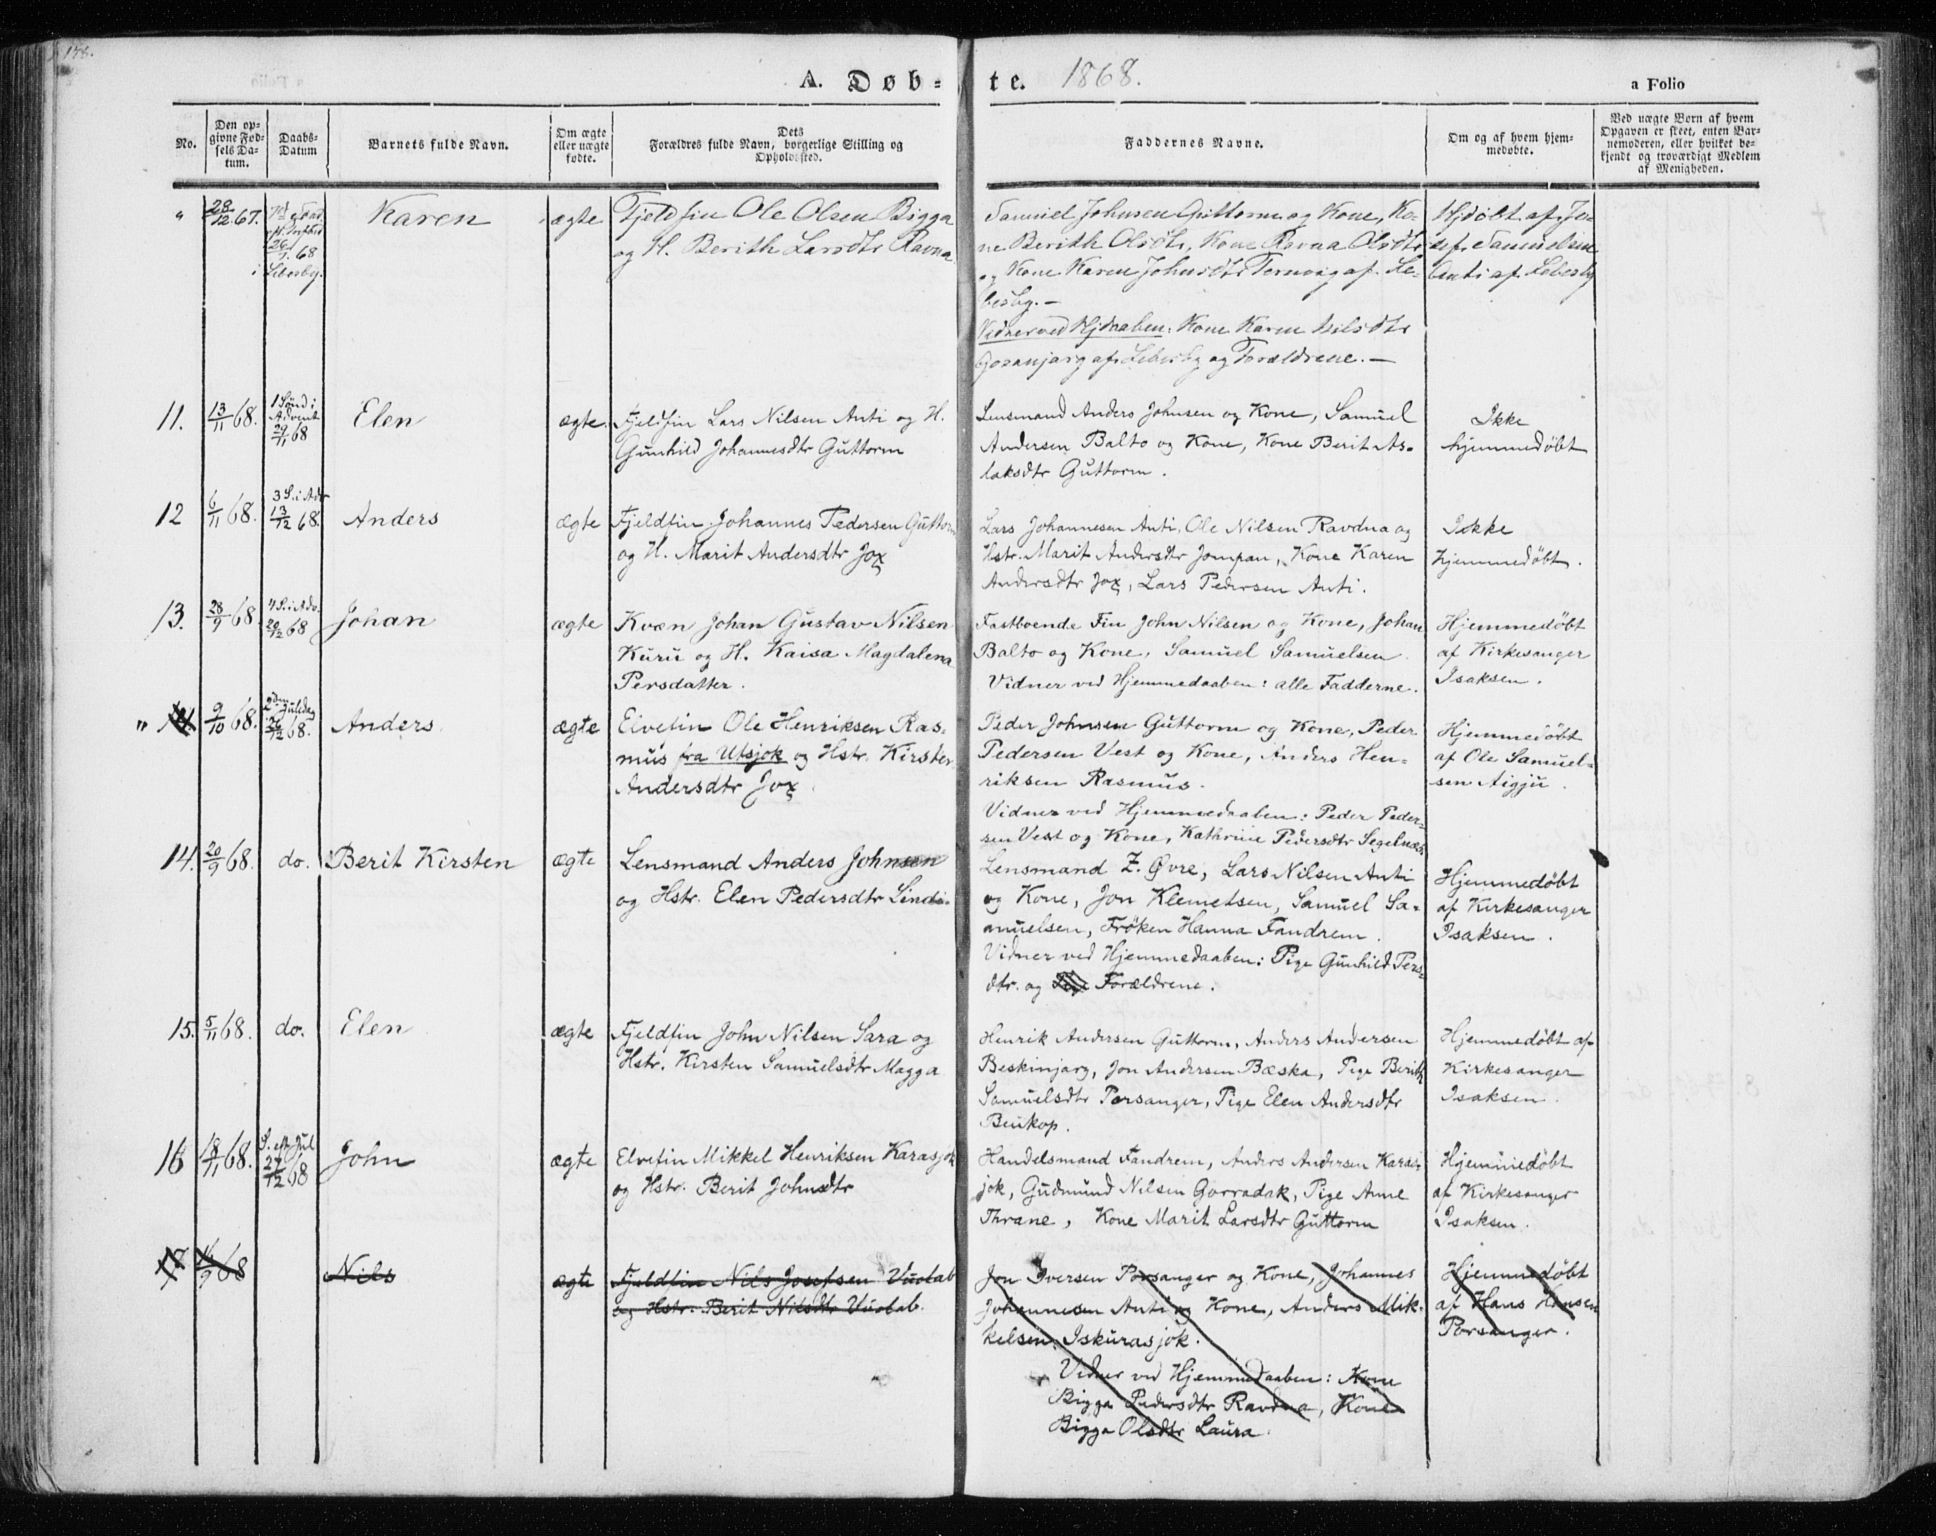 A. Døb-
te. 1868.
a Folio
No.
Den op-
givne Fød-
sels Da-
tum.
Daabs-
Datum
Barnets fulde Navn.
Om ægte
eller uægte
fødte.
Dets
Forældres fulde Navn, borgerlige Stilling og
Opholdssted.
Faddernes Navne.
Om og af hvem hjem-
medøbte.
Ved uægte Børn af hvem
Opgaven er skeet, enten Bar-
nemoderen, eller hvilket be-
kjendt og troværdigt Medlem
af Menigheden.
" 28/12 67.
26/1 68
i
Lebesby.
Karen
ægte
Fjeldfin Ole Olsen Bigga
og H. Berith Larsdtr Ravna
Samuel Johnsen Guttorm og Kone, Ko-
ne Berith Olsdtr, Kone Ravna Olsdtr
og Kone Karen Johnsdtr Tornvig af Le-
besby. —
Vidner ved Hjdaaben: Kone Karen Nilsdtr
af Lebesby og Forældrene. —
Hjdøbt af Jo-
sef Samuelsen
Anti af Lebesby
11. 13/11 68.
1 Sønd i
Advent
29/11 68
Elen
ægte.
Fjeldfin Lars Nilsen Anti og H.
Gunhild Johannesdtr Guttorm
Lensmand Anders Johnsen og Kone, Samuel
Andersen Balto og Kone, Kone Berit As-
laksdtr Guttorm.
Ikke
hjemmedøbt
12 6/11 68.
3 S. i Adv
13/12 68.
Anders
ægte
Fjeldfin Johannes Pedersen Guttorm
og H. Marit Andersdtr Jox
Lars Johannesen Anti, Ole Nilsen Ravdna og
Hstr. Marit Andersdtr Jompan, Kone Karen
Andersdtr Jox, Lars Pedersen Anti.
Ikke
hjemmedøbt.
13. 28/9 68
4 S. i Adv.
20/12 68
Johan
ægte
Kvæn Johan Gustav Nilsen
Kuru og H. Kaisa Magdalena
Persdatter.
Fastboende Fin John Nilsen og Kone, Johan
Balto og Kone, Samuel Samuelsen.
Vidner ved Hjemmedaaben: alle Fadderne.
Hjemmedøbt
af Kirkesanger
Isaksen.
" 14 9/10 68.
2den Juldag
26/12 68.
Anders
ægte
Elvefin Ole Henriksen Ras-
mus fra Utsjok og Hstr. Kirsten
Andersdtr Jox
Peder Johnsen Guttorm og Kone, Peder
Pedersen Vest og Kone, Anders Hen-
riksen Rasmus.
Vidner ved Hjemmedaaben: Peder Peder-
sen Vest og Kone, Kathrine Pedersdtr Segelnæs
Hjemmedøbt
af Ole Samuel-
sen Aigju.
14. 20/9 68. do. Berit Kirsten
ægte
Lensmand Anders Johnsen
og Hstr. Elen Pedersdtr Sinda.
Lensmand Z. Øvre, Lars Nilsen Anti
og Kone, Jon Klemetsen, Samuel Sa-
muelsen, Frøken Hanna Fandrem.
Vidner ved Hjemmedaaben: Pige Gunhild Pers-
dtr. og Forældrene.
Hjemmedøbt
af Kirkesanger
Isaksen.
15. 5/11 68. do. Elen
ægte
Fjeldfin John Nilsen Sara og
Hstr. Kirsten Samuelsdtr Magga
Henrik Andersen Guttorm, Anders Andersen
Beskinjarg, Jon Andersen Bæska, Pige Berith
Samuelsdtr Porsanger, Pige Elen Andersdtr
Beukop.
Hjemmedøbt af
Kirkesanger
Isaksen.
16 18/11 68.
S. e. Jul
27/12 68
John
ægte
Elvefin Mikkel Henriksen Karasjok
og Hstr. Berit Johnsdtr
Handelsmand Fandrem, Anders Andersen Karas-
jok, Gudmund Nilsen Gorradak, Pige Anne
Thrane, Kone Marit Larsdtr Guttorm
Hjemmedøbt
af Kirkesanger
Isaksen.
17 16/9 68
Nils
ægte
Fjeldfin Nils Josefsen Vuolab
og Hstr. Berit Nilsdtr Vuolab.
Jon Iversen Porsanger og Kone, Johannes
Johannesen Anti og Kone, Anders Mik-
kelsen Iskurasjok.
Vidner ved Hjemmedaaben: Kone
Bigga Pedersdtr Ravdna, Kone
Bigga Olsdtr Laura.
Hjemmedøbt
af Hans Hansen
Porsanger.